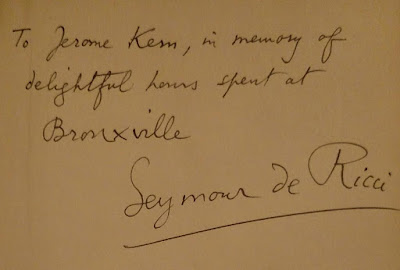 To Jerome Kern, in memory of
delightful hours spent at
Bronxville
Seymour de Ricci